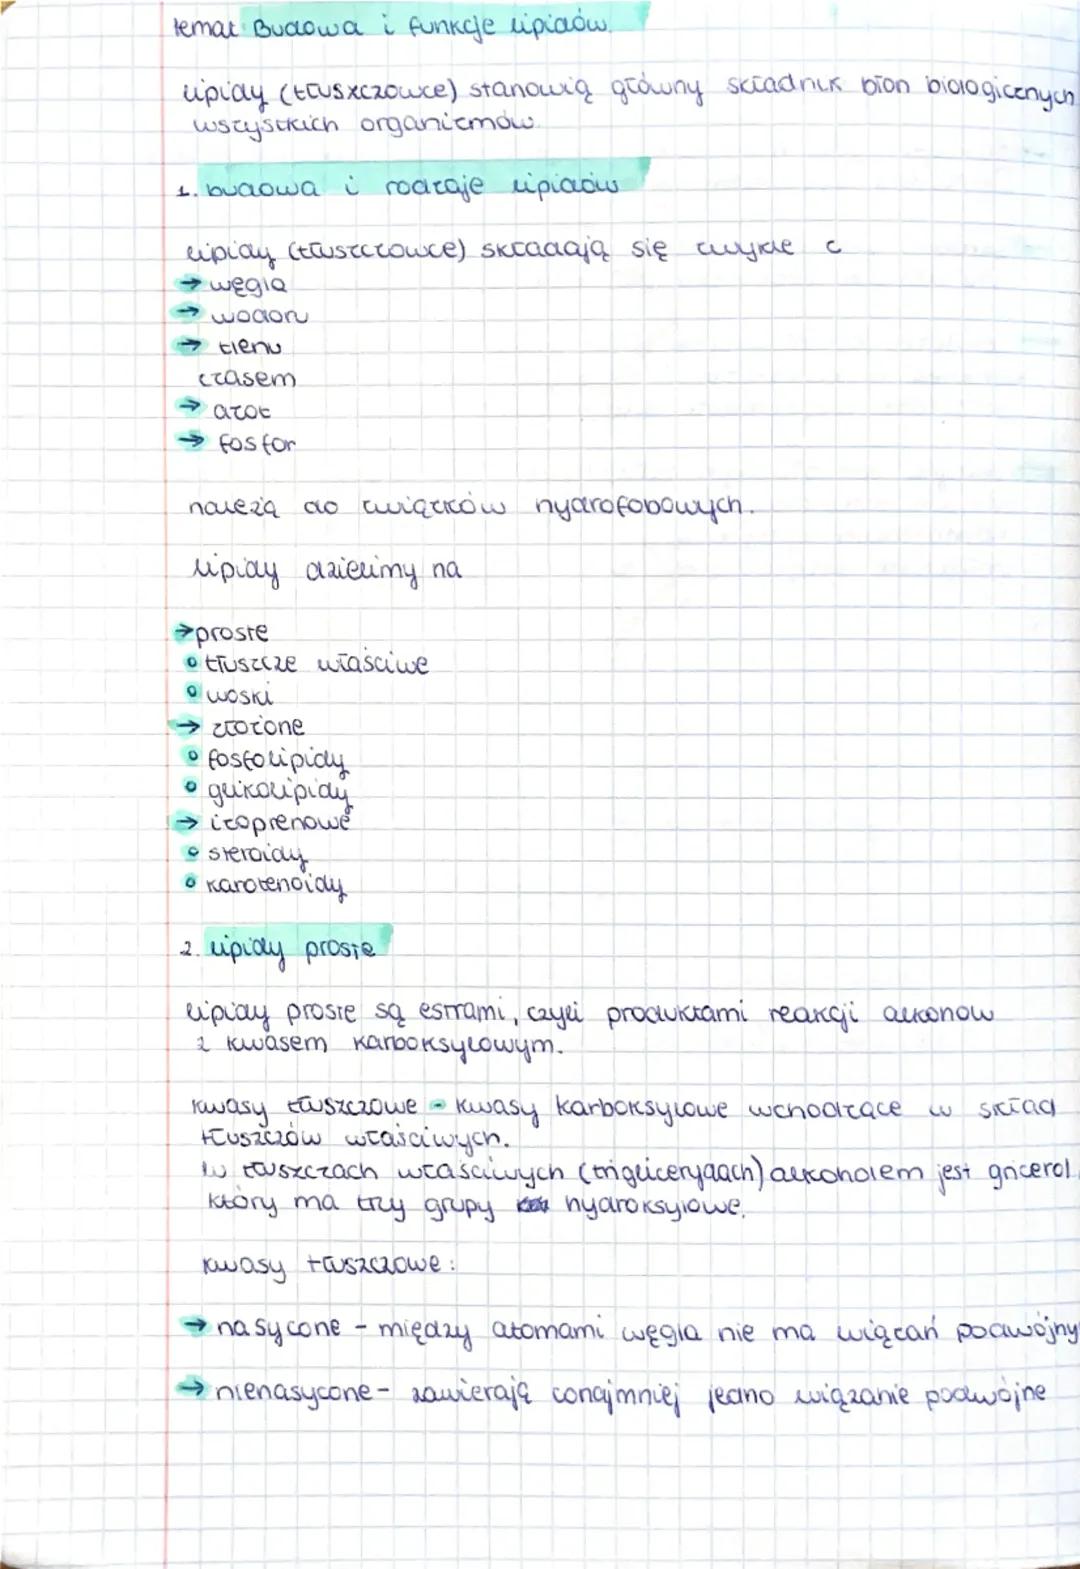 temat: Budowa i funkcje lipidów.
lipidy (tłuszczowce) stanowią główny składnik błon biologicznych
wszystkich organizmów.
1. budowa i rodzaje lipidów
lipidy (tłuszczowce) składają się zwykle z
→ węgla
→ wodoru
→ tlenu
czasem
→ azot
→ fosfor
należą do związków hydrofobowych.
lipidy dzielimy na
→ proste
• tłuszcze właściwe
• woski
→ złożone
• fosfolipidy
• glikolipidy
→ izoprenowe
• steroidy
• karotenoidy
2. lipidy proste
lipidy proste są estrami, czyli produktami reakcji alkonow
z kwasem karboksylowym.
kwasy tłuszczowe - kwasy karboksylowe wchodzące w skład
tłuszczów właściwych.
w tłuszczach właściwych (triglicerydach) alkoholem jest glicerol,
który ma trzy grupy hydroksylowe.
kwasy tłuszczowe:
→ nasycone - między atomami węgla nie ma wiązań podwójny
→ nienasycone - zawierają conajmniej jedno wiązanie podwójne